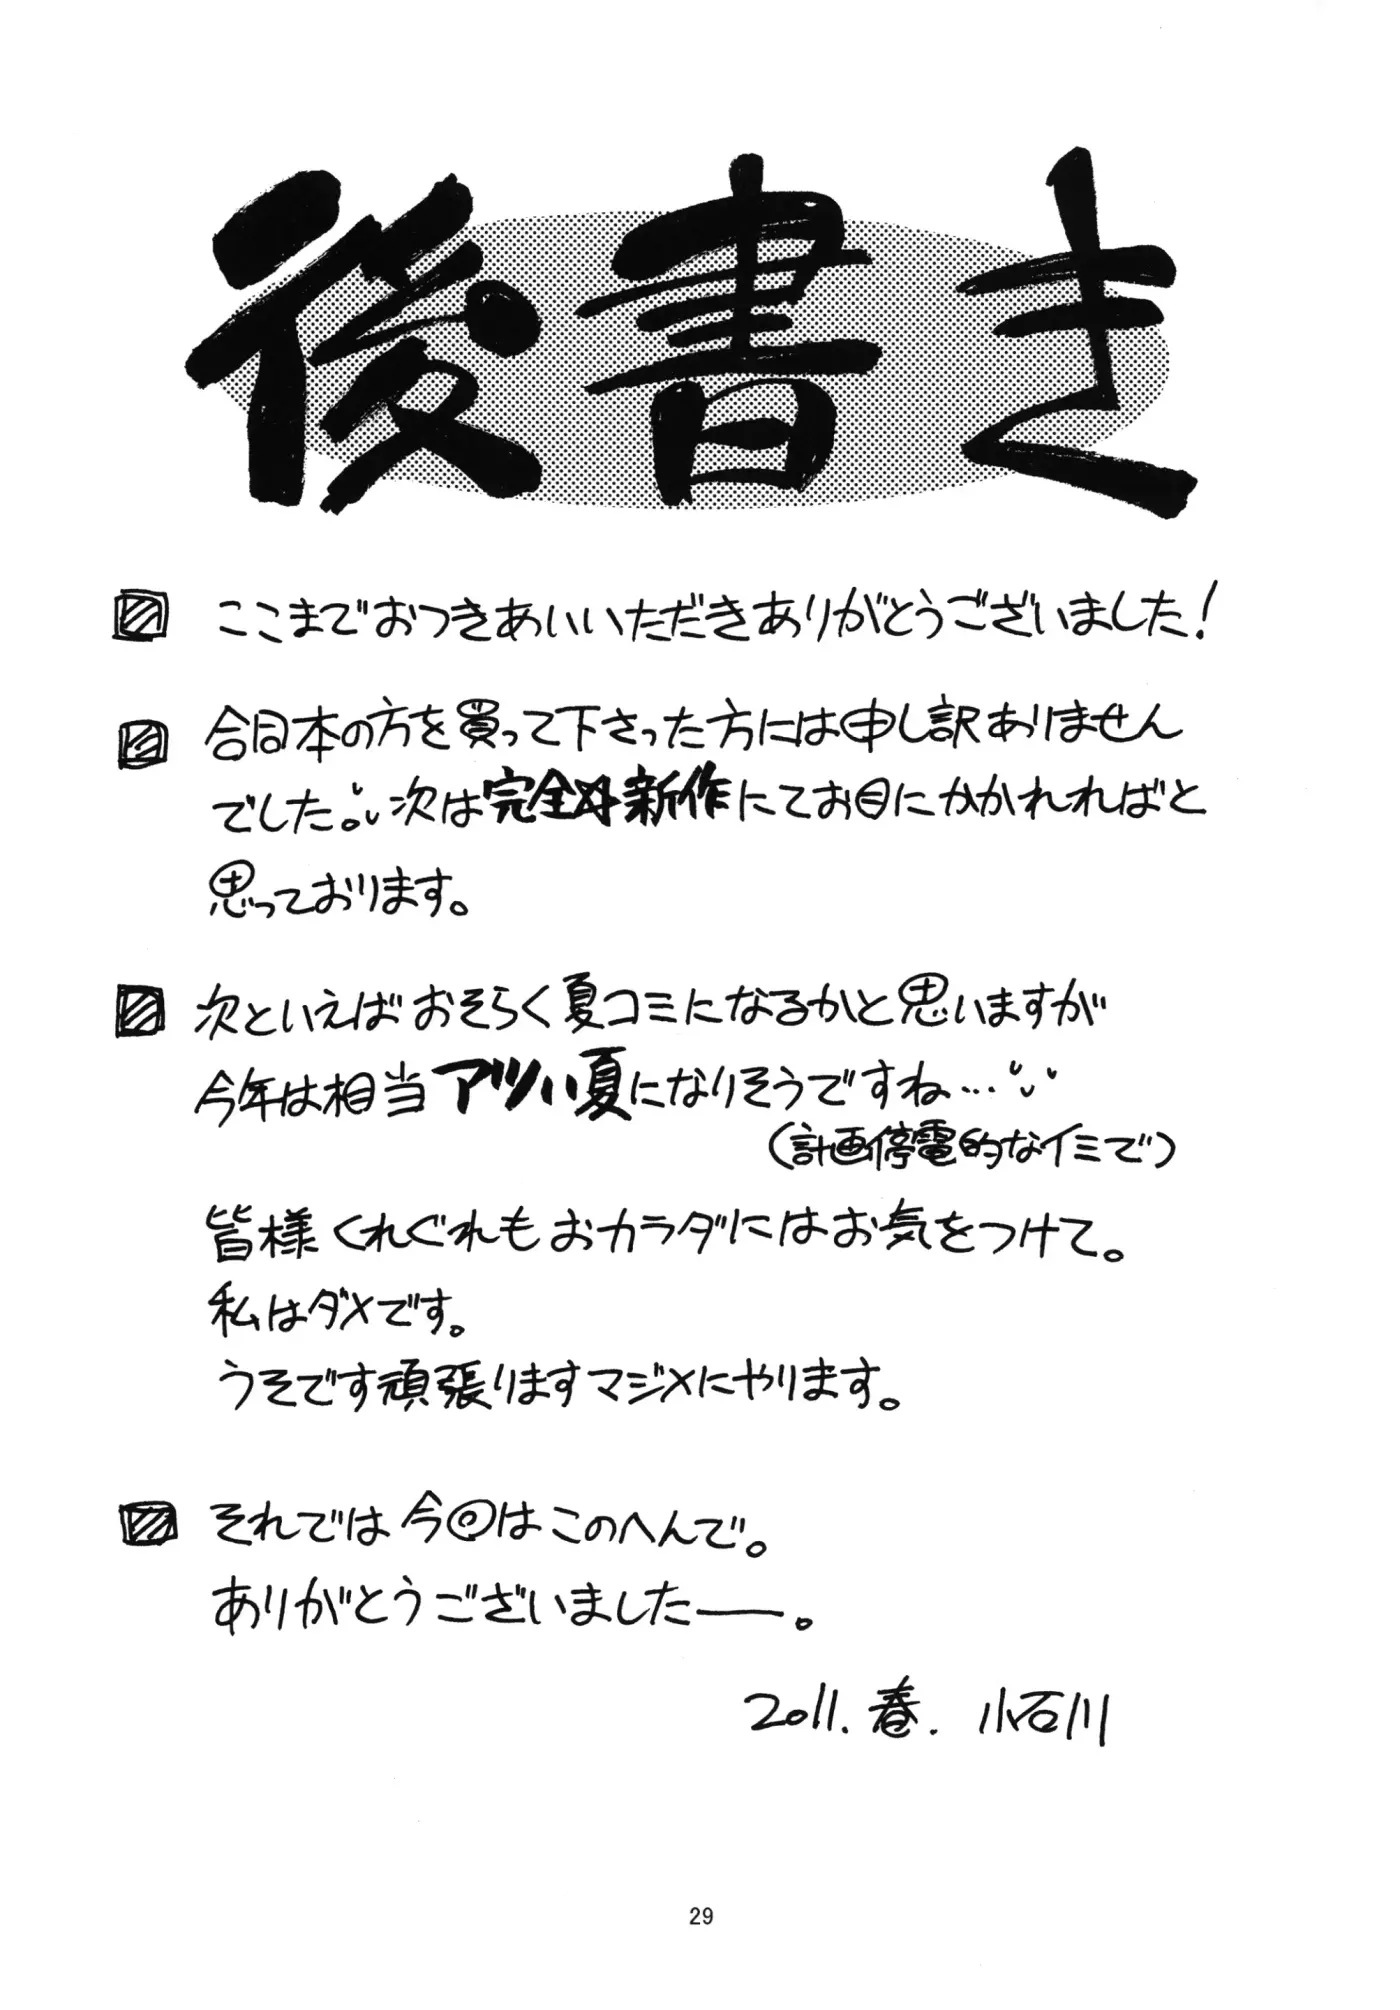 後書き
ここまでおつきあいいただきありがとうございました!
合同本の方を買って下さった方には申し訳ありません
でした。次は完全新作にてお目にかかれればと
思っております。
次といえばおそらく夏コミになるかと思いますが
今年は相当アツい夏になりそうですね…
(計画停電的なイミで)
皆様くれぐれもおカラダにはお気をつけて。
私はダメです。
うそです頑張りますマジメにやります。
それでは今回はこのへんで。
ありがとうございましたー。
2011.春. 小石川
29